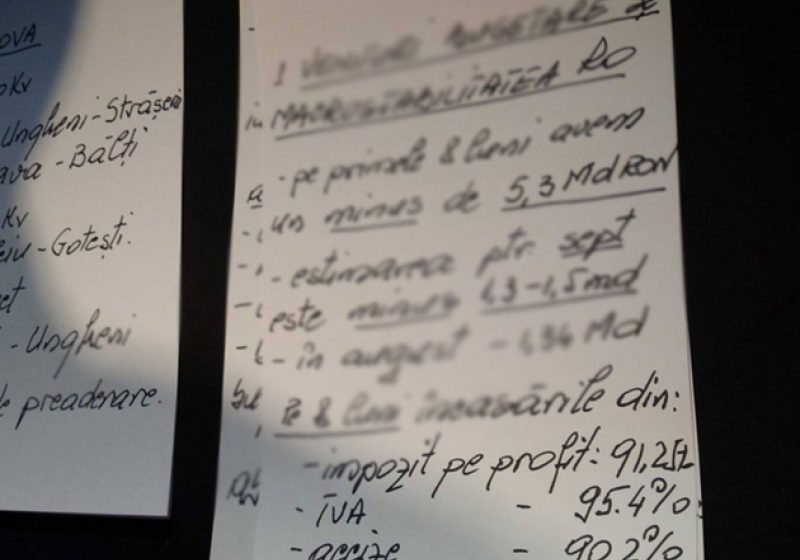 OVA
Kv
Ungheni-Strășeni
ava - Bălți
Kv
eiu - Gotești.
et
- Ungheni
preaderare.
1 VENITURI BUGETARE de
in MACROSTABILITATEA RO
- pe primele 8 luni avem
un minus de 5,3 Md RON
- estimarea ptr. sept
este minus 1,3-1,5 md
- în august - 1,34 Md
Pe 8 luni încasările din:
- impozit pe profit: 91,2%
- TVA - 95.4%
- accize - 90.2%